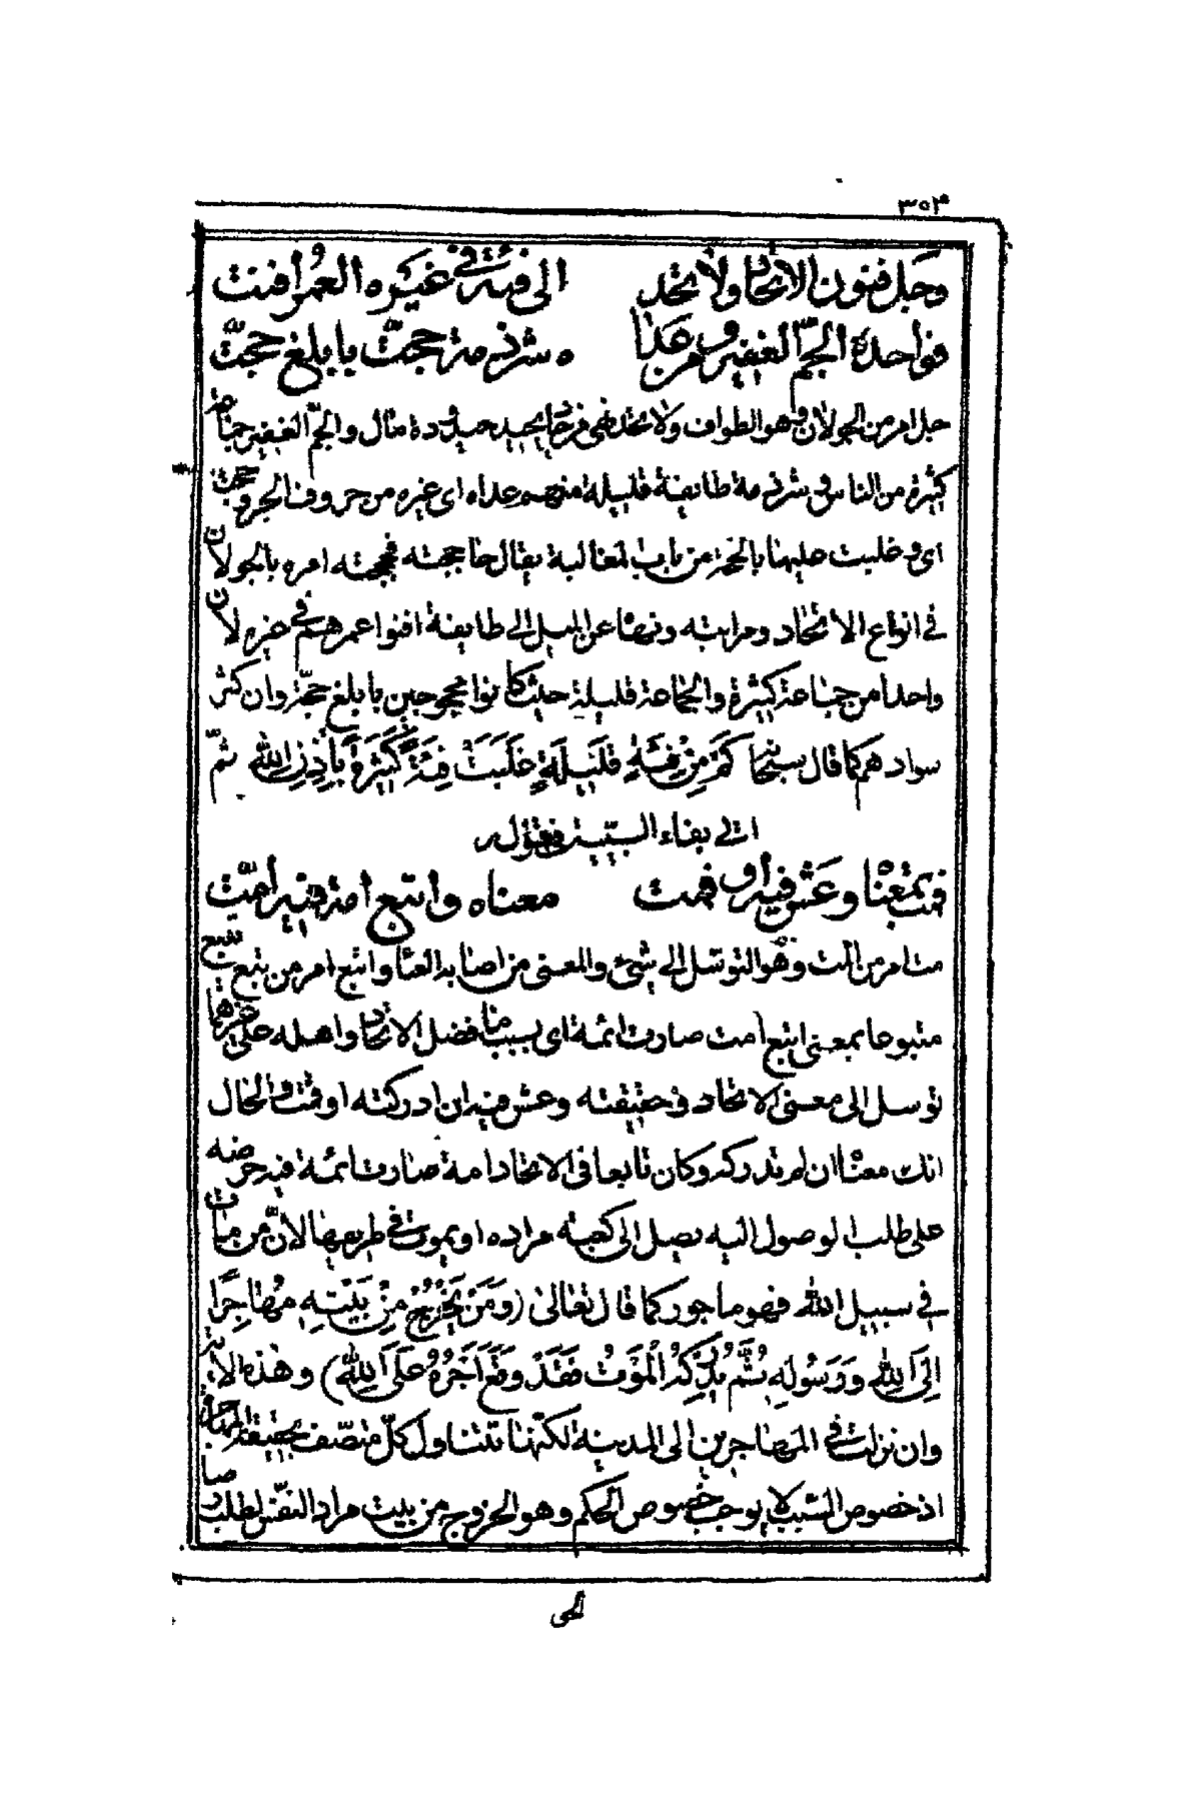 ٣٥٣
وجل فنون الاتحاد ولا تحد الى فئة في غيره العمر افنت
فواحده الجمّ الغفير ومن عدا ه شرذمة حجّت بابلغ حجّت
جل امر من الجولان وهو الطواف ولا تحد نهي من حاد يحيد حيدودة مثال والجمّ الغفير جماعة
كثيرة من الناس وشرذمة طايفة قليلة منهم عداه اى غيره من حروف الجر وحجت
اى وغلبت عليها بالحجة من باب المغالبة يقال حاججته فحججته امره بالجولان
في انواع الاتحاد ومراتبه ونهاه عن الميل الى طايفة افنوا عمرهم في غيره لان
واحدا من جماعة كثيرة والجماعة قليلة حيث كانوا محجوجين بابلغ حجّة وان كثر
سوادهم كما قال سبحانه كَمْ مِنْ فِئَةٍ قَلِيلَةٍ غَلَبَتْ فِئَةً كَثِيرَةً بِإِذْنِ اللهِ ثمّ
اتى بفاء السببية فقول
فمت بمعناه وعش فيه أو فمت معناه واتبع امة فيه أمّت
مت امر من المت وهو التوسّل الى شئ والمعنى من اصابه العنا واتبع امر من تبع يتبع
متبوعا بمعنى اتبع امت صارت ائمة اى بسبب ما فضل الاتحاد واهله على غيرها
توسل الى معنى الاتحاد في حقيقته وعش فيه ان ادركته او فمت والحال
انك معناه ان لم تدركه وكان تابعا في الاتحاد امة صارت ائمة فيه حرضه
على طلب الوصول اليه يصل الى كعبة مراده او يموت في طريقها لانّ من مات
في سبيل الله فهو ماجور كما قال تعالى (وَمَنْ يَخْرُجْ مِنْ بَيْتِهِ مُهَاجِرًا
إِلَى اللهِ وَرَسُولِهِ ثُمَّ يُدْرِكْهُ الْمَوْتُ فَقَدْ وَقَعَ أَجْرُهُ عَلَى اللهِ) وهذه الاية
وان نزلت في المهاجرين الى المدينة لكنها تتناول كلّ متصّف بحقيقة المهاجرة
اذ خصوص السبب لا يوجب خصوص الحكم وهو الخروج من بيت مراد النفس لطلب رضا
الحى